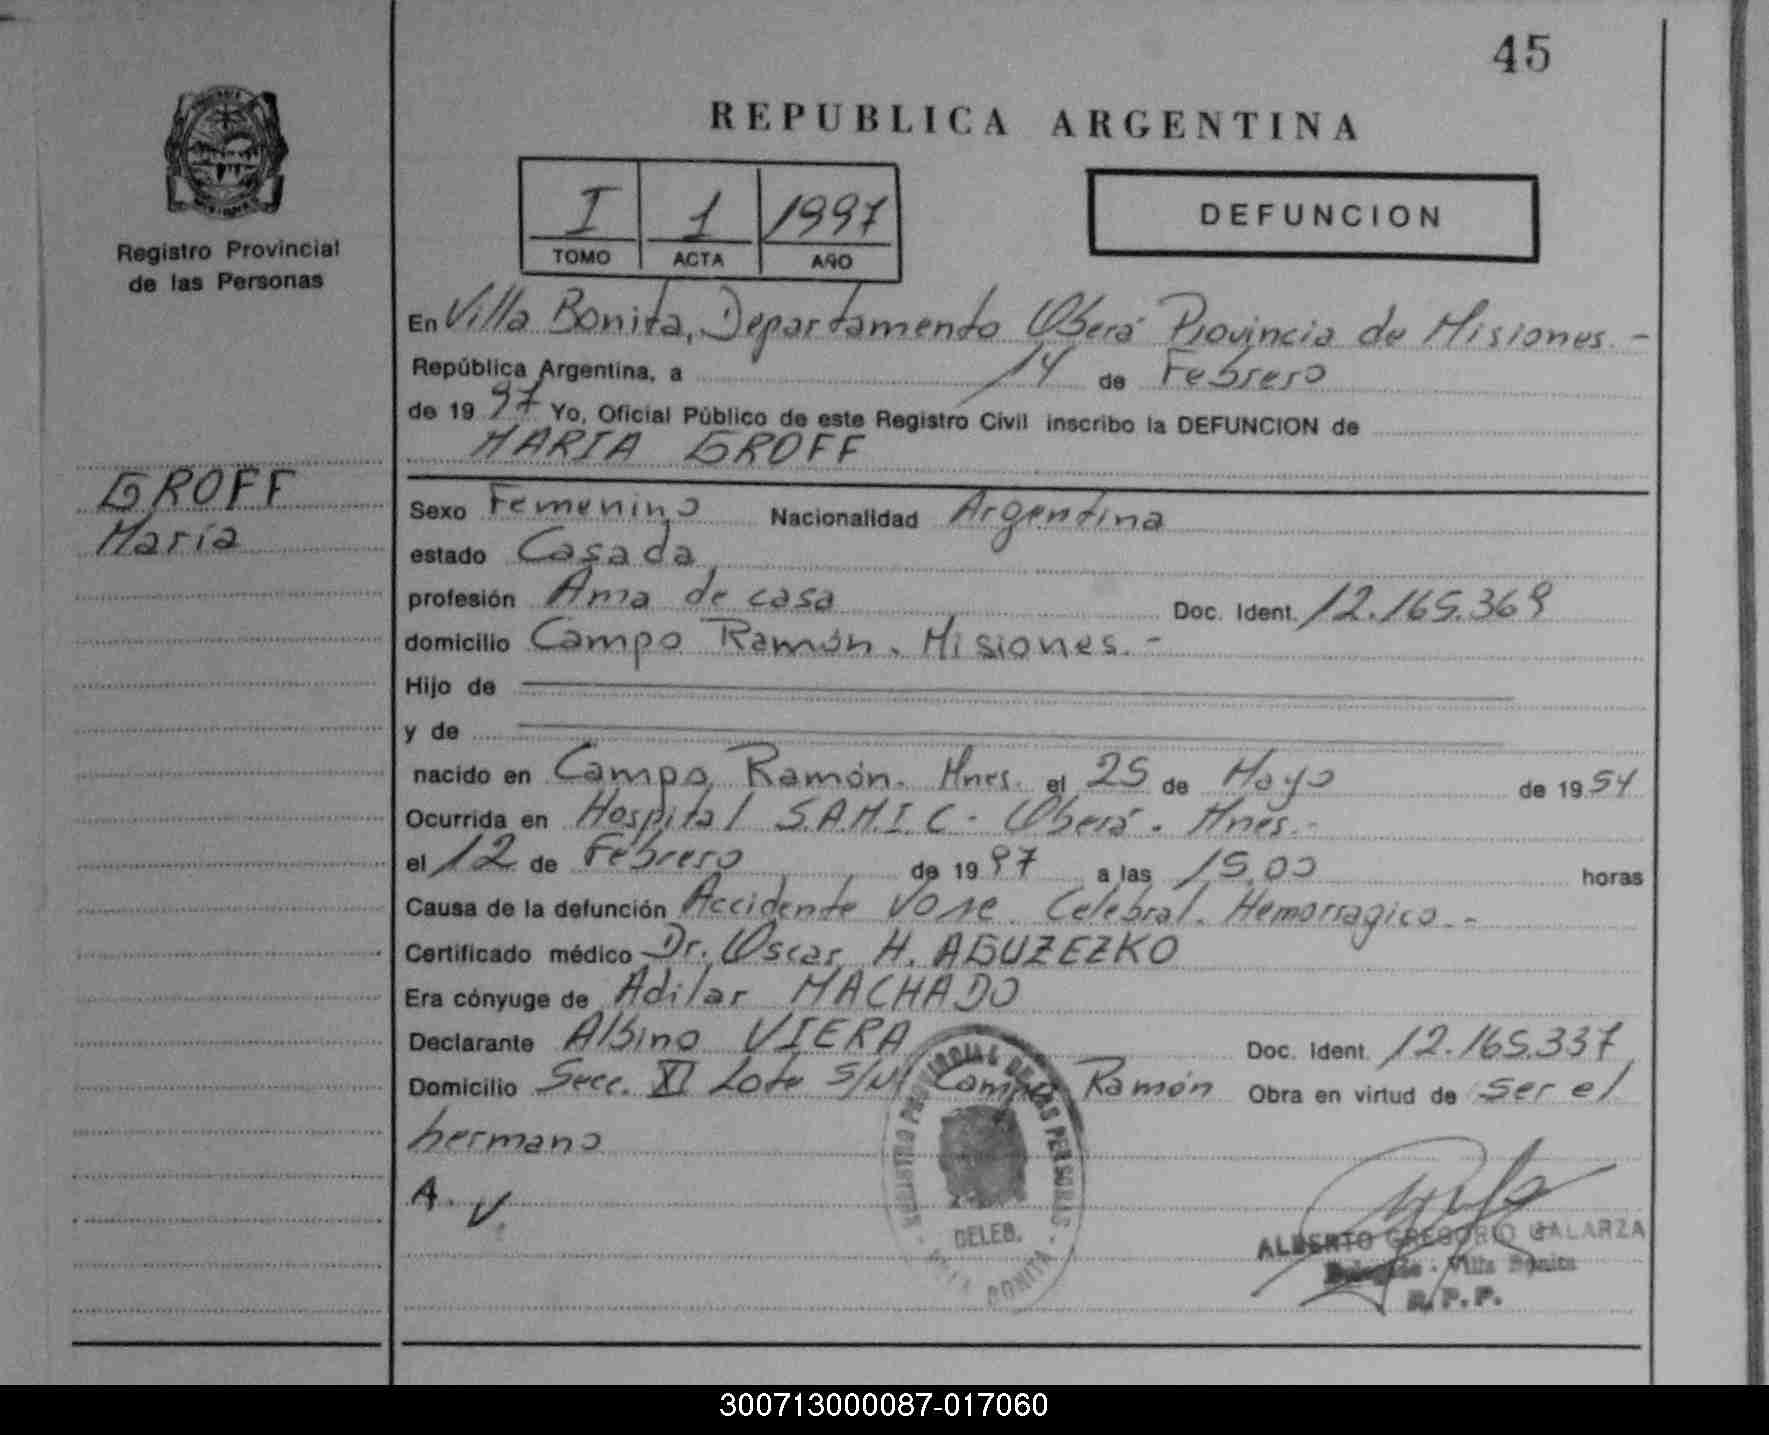 45
REPUBLICA ARGENTINA
Registro Provincial
de las Personas
I 1 1997
TOMO ACTA AÑO
DEFUNCION
En Villa Bonita, Departamento Oberá Provincia de Misiones.-
República Argentina, a 14 de Febrero
de 19 97 Yo, Oficial Público de este Registro Civil inscribo la DEFUNCION de
MARIA GROFF
GROFF
María
Sexo Femenino Nacionalidad Argentina
estado Casada
profesión Ama de casa Doc. Ident. 12.165.369
domicilio Campo Ramón. Misiones.-
Hijo de
y de
nacido en Campo Ramón. Mnes. el 25 de Mayo de 19 54
Ocurrida en Hospital S.A.M.I.C - Oberá. Mnes.-
el 12 de Febrero de 19 97 a las 15,00 horas
Causa de la defunción Accidente Celebral. Hemorragico.-
Certificado médico Dr. Oscar H. AGUZEZKO
Era cónyuge de Adilar MACHADO
Declarante Albino VIERA Doc. Ident. 12.165.337
Domicilio Secc. XI Lote S/N Campo Ramón Obra en virtud de ser el
hermano
A. V.
REGISTRO PROVINCIAL DE LAS PERSONAS
DELEG.
VILLA BONITA
ALBERTO GREGORIO GALARZA
Delegado - Villa Bonita
R.P.P.
300713000087-017060